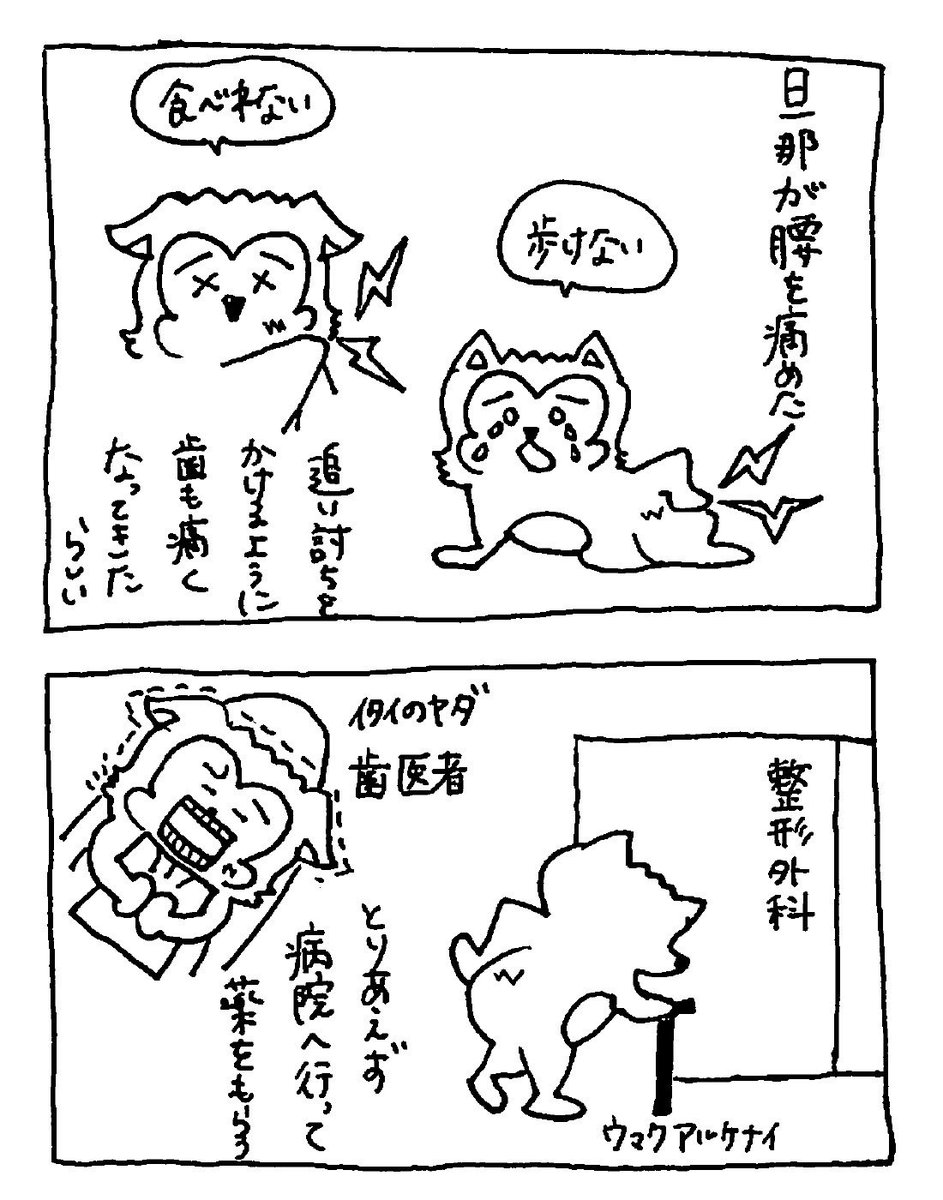 旦那が腰を痛めた
歩けない
食べれない
追い討ちを
かけるように
歯も痛く
なってきた
らしい
整形外科
ウマクアルケナイ
イタイのヤダ
歯医者
とりあえず
病院へ行って
薬をもらう